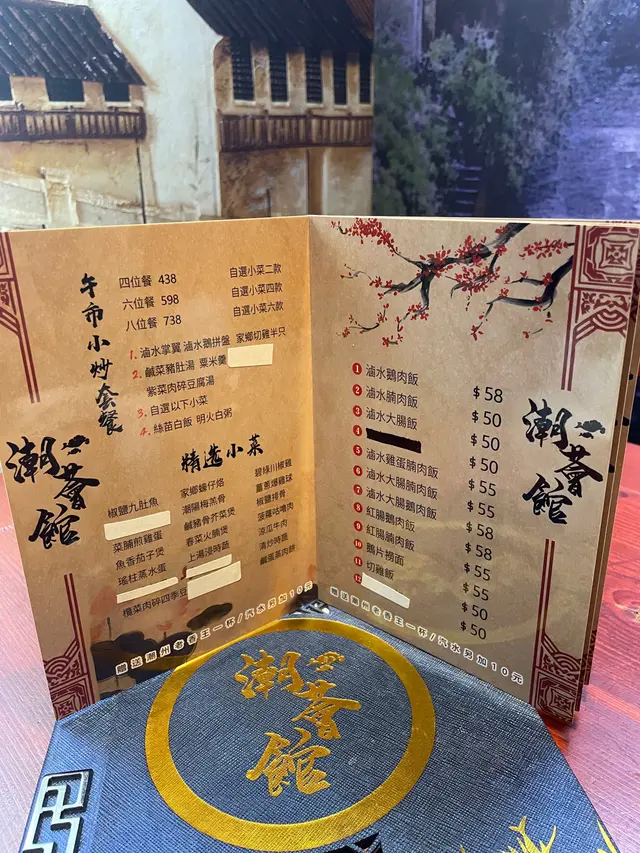 午市小炒套餐
四位餐 438 自選小菜二款
六位餐 598 自選小菜四款
八位餐 738 自選小菜六款
1. 滷水掌翼 滷水鵝拼盤 家鄉切雞半只
2. 鹹菜豬肚湯 粟米羹
紫菜肉碎豆腐湯
3. 自選以下小菜
4. 絲苗白飯 明火白粥
潮薈館
精選小菜
椒鹽九肚魚 家鄉蠔仔烙 碧綠川椒雞
潮陽梅羔骨 薑蔥爆雞球
菜脯煎雞蛋 鹹豬骨芥菜煲 椒鹽排骨
魚香茄子煲 春菜火腩煲 菠蘿咕嚕肉
瑤柱蒸水蛋 上湯浸時蔬 涼瓜牛肉
清炒時蔬
欖菜肉碎四季豆 鹹蛋蒸肉餅
贈送潮州老香王一杯/汽水另加10元
1 滷水鵝肉飯 $58
2 滷水腩肉飯 $50
3 滷水大腸飯 $50
4 $50
5 滷水雞蛋腩肉飯 $55
6 滷水大腸腩肉飯 $55
7 滷水大腸鵝肉飯 $58
8 紅腸鵝肉飯 $58
9 紅腸腩肉飯 $55
10 鵝片撈面 $55
11 切雞飯 $50
12 $50
潮薈館
贈送潮州老香王一杯/汽水另加10元
潮薈館